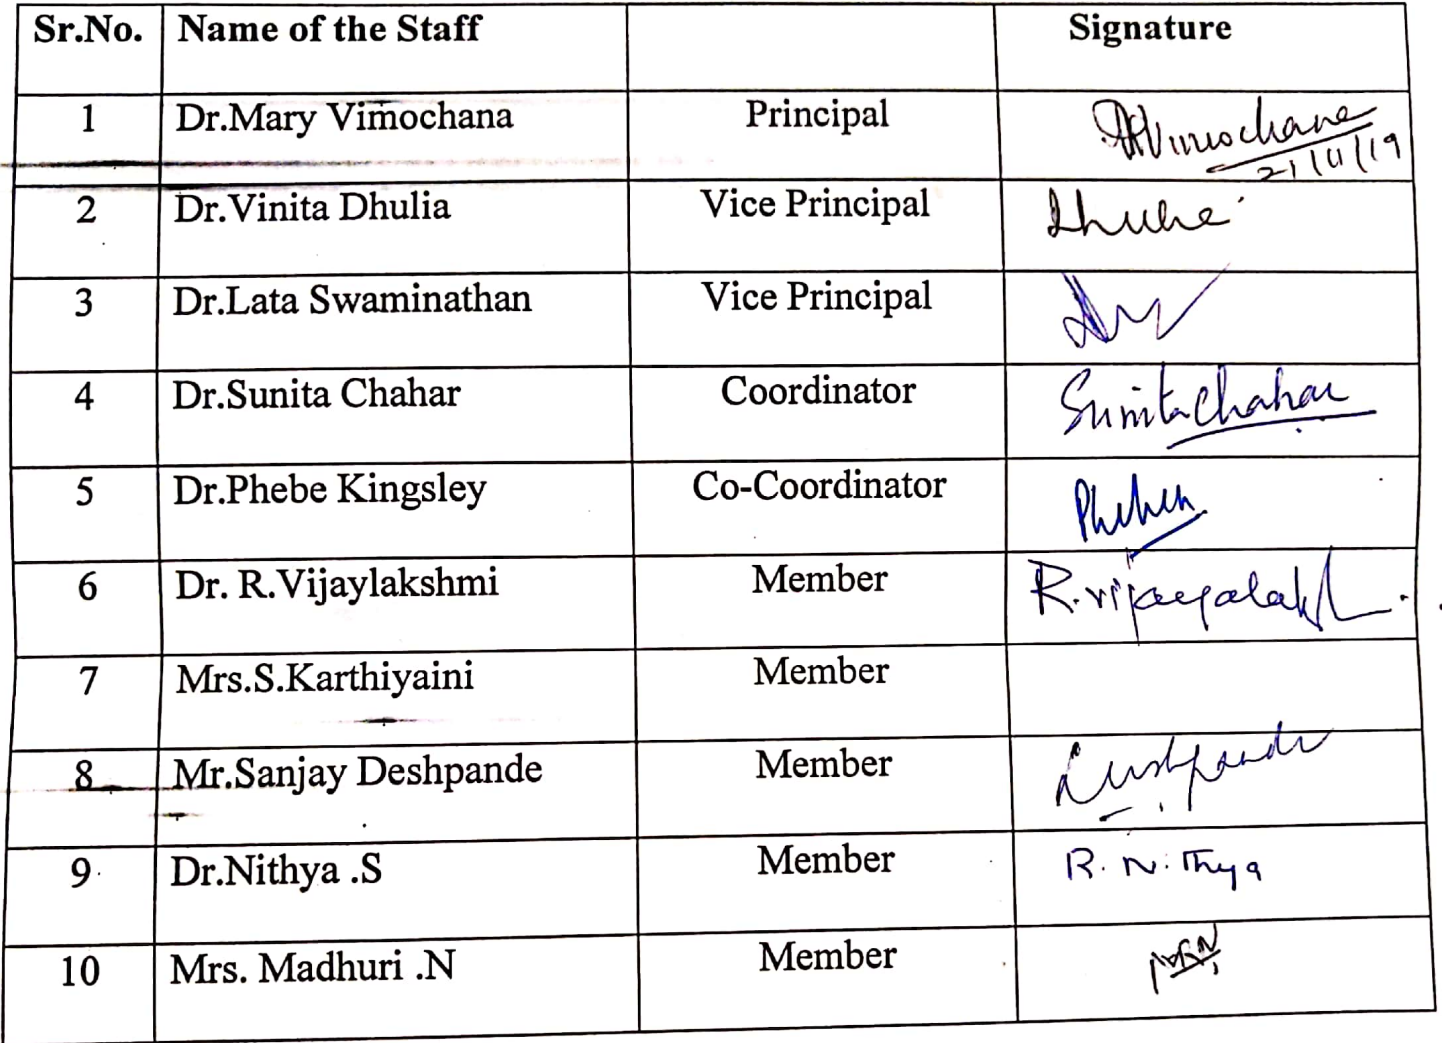 Sr.No. Name of the Staff Signature
1 Dr.Mary Vimochana Principal Vimochana
21/11/19
2 Dr.Vinita Dhulia Vice Principal
3 Dr.Lata Swaminathan Vice Principal
4 Dr.Sunita Chahar Coordinator Sunita Chahar
5 Dr.Phebe Kingsley Co-Coordinator
6 Dr. R.Vijaylakshmi Member R.Vijayalak
7 Mrs.S.Karthiyaini Member
8 Mr.Sanjay Deshpande Member
9 Dr.Nithya .S Member R. Nithya
10 Mrs. Madhuri .N Member